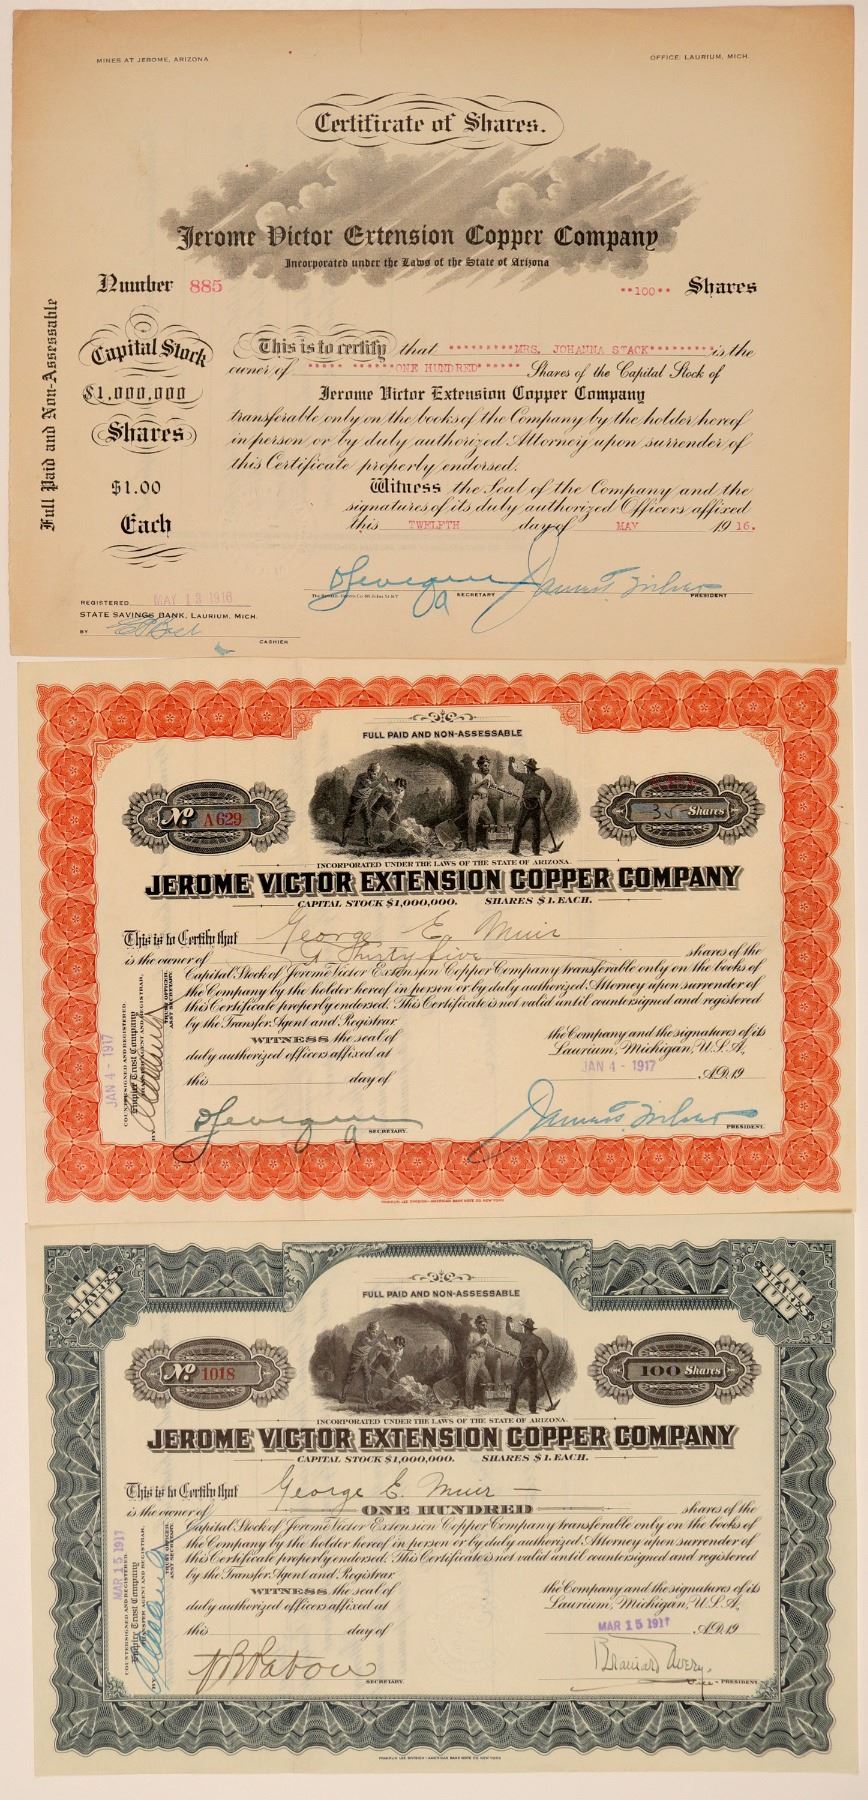 MINES AT JEROME, ARIZONA
OFFICE, LAURIUM, MICH.
Certificate of Shares.
Jerome Victor Extension Copper Company
Incorporated under the Laws of the State of Arizona
Number 885
**100** Shares
Full Paid and Non-Assessable
Capital Stock
$1,000,000
Shares
$1.00
Each
This is to certify that *********MRS. JOHANNA STACK********* is the
owner of ***** ******ONE HUNDRED****** Shares of the Capital Stock of
Jerome Victor Extension Copper Company
transferable only on the books of the Company by the holder hereof
in person or by duly authorized Attorney upon surrender of
this Certificate properly endorsed.
Witness the Seal of the Company and the
signatures of its duly authorized Officers affixed
this TWELFTH day of MAY 1916.
SECRETARY
PRESIDENT
REGISTERED MAY 13 1916
STATE SAVINGS BANK, LAURIUM, MICH.
BY
CASHIER
FULL PAID AND NON-ASSESSABLE
No. A629
35 Shares
INCORPORATED UNDER THE LAWS OF THE STATE OF ARIZONA.
JEROME VICTOR EXTENSION COPPER COMPANY
CAPITAL STOCK $1,000,000. SHARES $1. EACH.
This is to Certify that George E. Muir
is the owner of Thirty five shares of the
Capital Stock of Jerome Victor Extension Copper Company transferable only on the books of
the Company by the holder hereof in person or by duly authorized Attorney upon surrender of
this Certificate properly endorsed. This Certificate is not valid until countersigned and registered
by the Transfer Agent and Registrar
WITNESS the seal of the Company and the signatures of its
duly authorized officers affixed at Laurium, Michigan, U.S.A.
JAN 4 - 1917
this day of A.D. 19
SECRETARY.
PRESIDENT.
JAN 4 - 1917
COUNTERSIGNED AND REGISTERED.
Empire Trust Company
TRANSFER AGENT AND REGISTRAR,
BY
TRUST OFFICER.
ASST SECRETARY.
FRANKLIN LEE DIVISION - AMERICAN BANK NOTE CO. NEW YORK
100
SHARES
100
SHARES
FULL PAID AND NON-ASSESSABLE
No. 1018
100 Shares
INCORPORATED UNDER THE LAWS OF THE STATE OF ARIZONA.
JEROME VICTOR EXTENSION COPPER COMPANY
CAPITAL STOCK $1,000,000. SHARES $1. EACH.
This is to Certify that George E. Muir
is the owner of ONE HUNDRED shares of the
Capital Stock of Jerome Victor Extension Copper Company transferable only on the books of
the Company by the holder hereof in person or by duly authorized Attorney upon surrender of
this Certificate properly endorsed. This Certificate is not valid until countersigned and registered
by the Transfer Agent and Registrar
WITNESS the seal of the Company and the signatures of its
duly authorized officers affixed at Laurium, Michigan, U.S.A.
MAR 15 1917
this day of A.D. 19
SECRETARY.
Brainard Avery.
Vice - PRESIDENT
MAR 15 1917
COUNTERSIGNED AND REGISTERED.
Empire Trust Company
TRANSFER AGENT AND REGISTRAR,
BY
TRUST OFFICER.
ASST SECRETARY.
FRANKLIN LEE DIVISION - AMERICAN BANK NOTE CO. NEW YORK